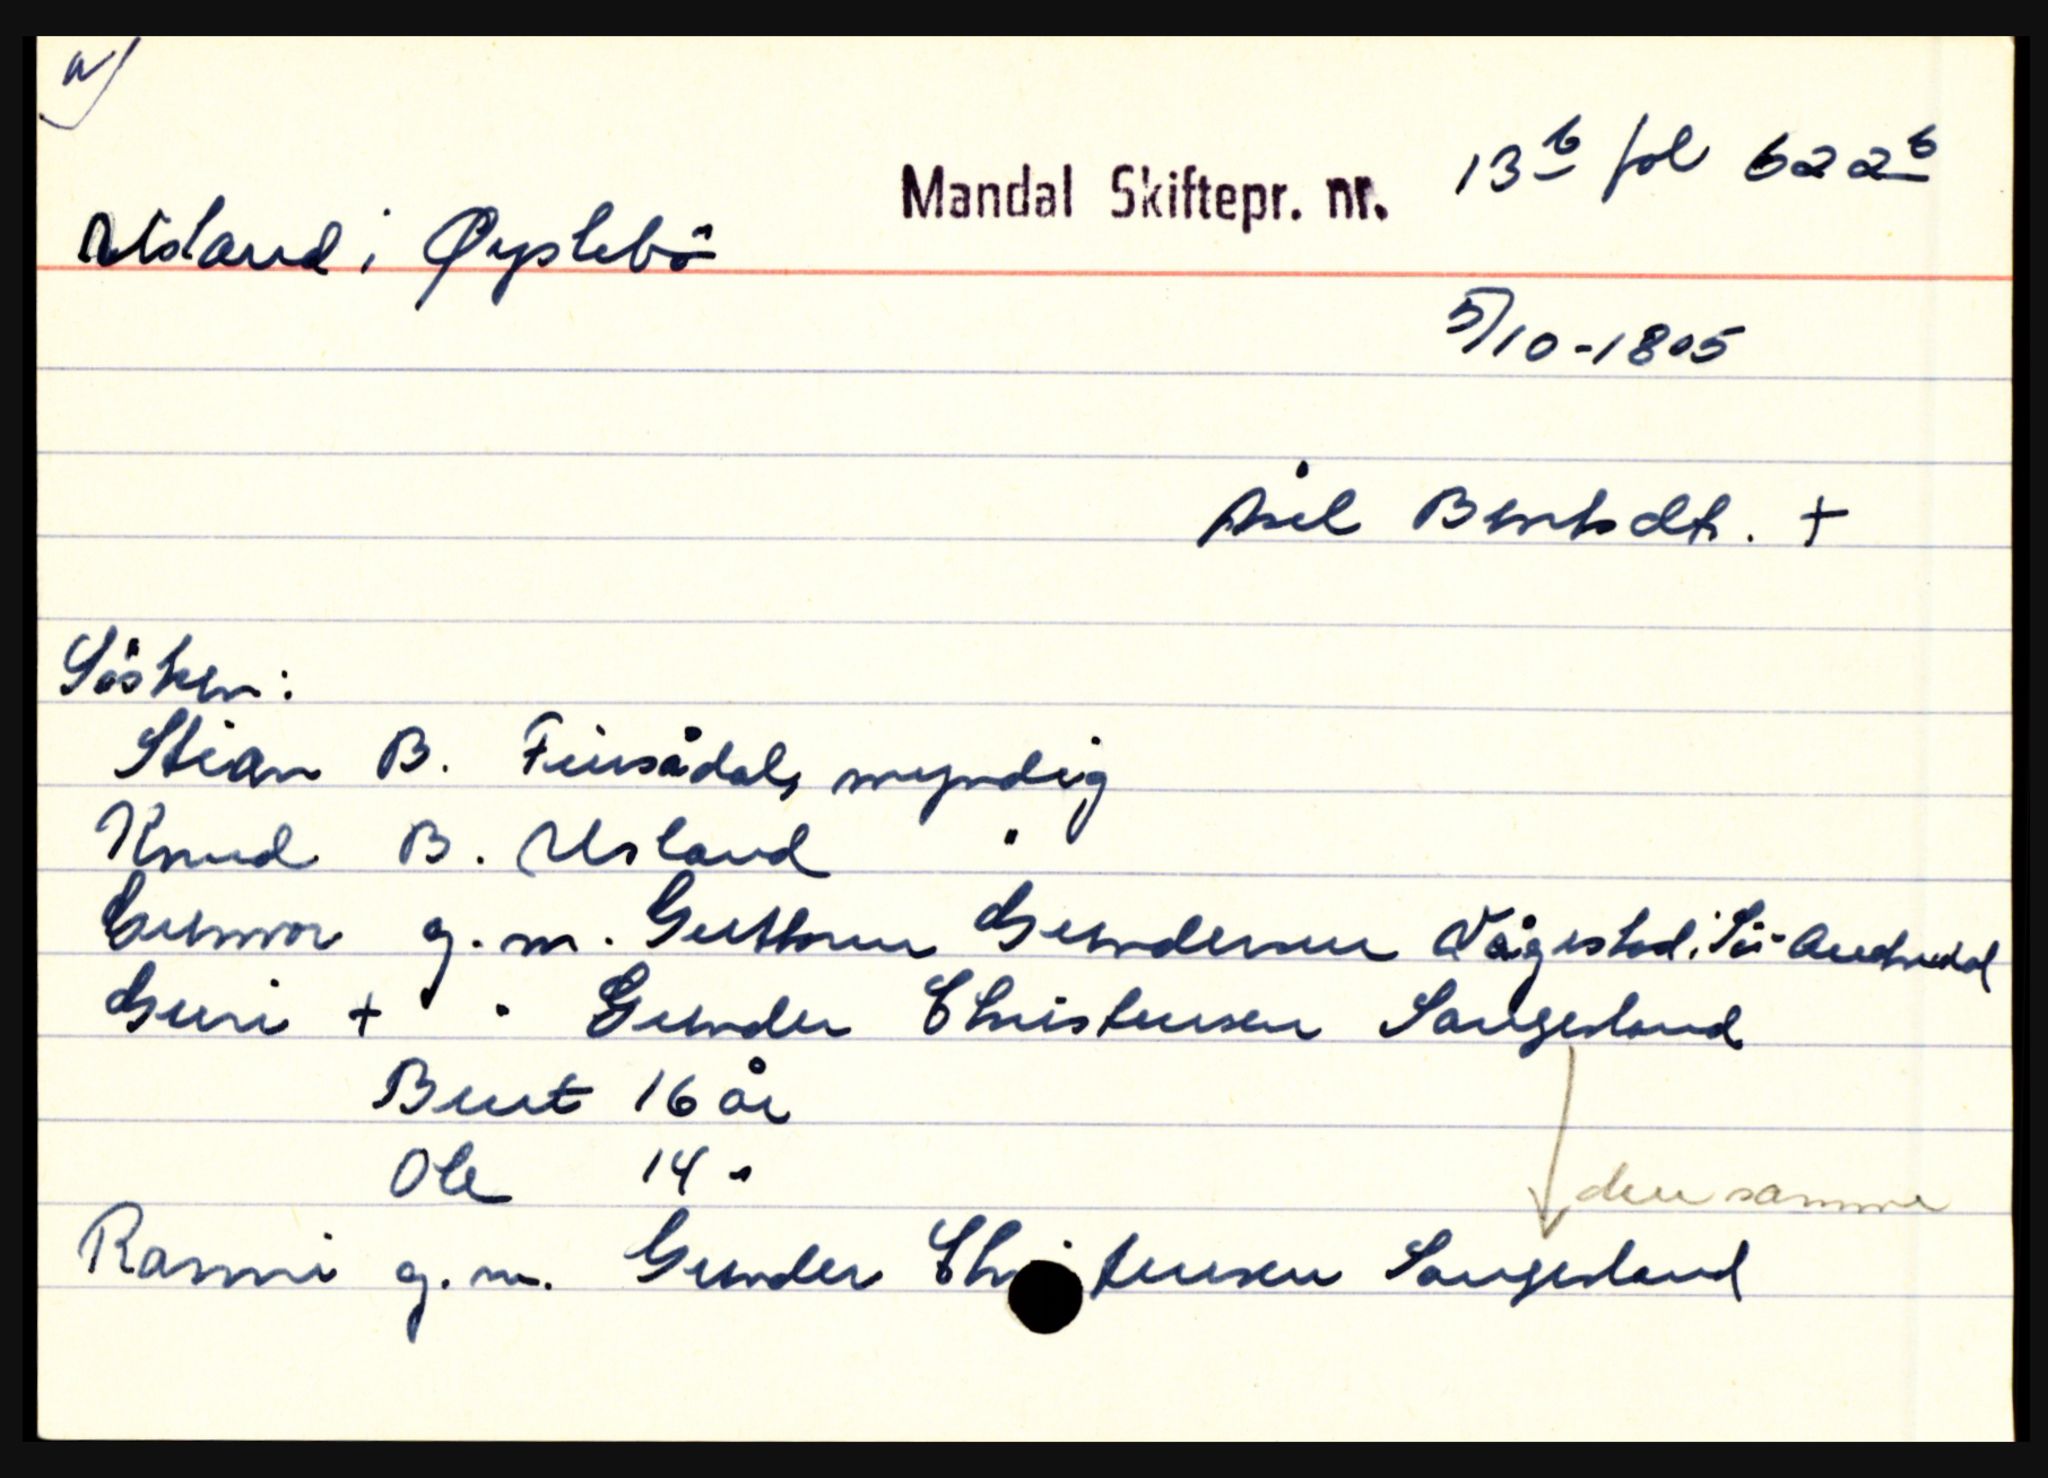 Mandal Skiftepr. nr. 13b fol 622b
Usland i Øyslebö
5/10-1805
Åsel Berntsdtr. +
Sösken:
Stian B. Finsådal, myndig
Knud B. Usland "
Gunvor g.m. Guttorm Gundersen Vågestad i Sör-Audnedal
Guri + " Gunder Christensen Sangesland
Bernt 16 år
Ole 14 "
den samme
Ranni g.m. Gunder Christensen Sangesland